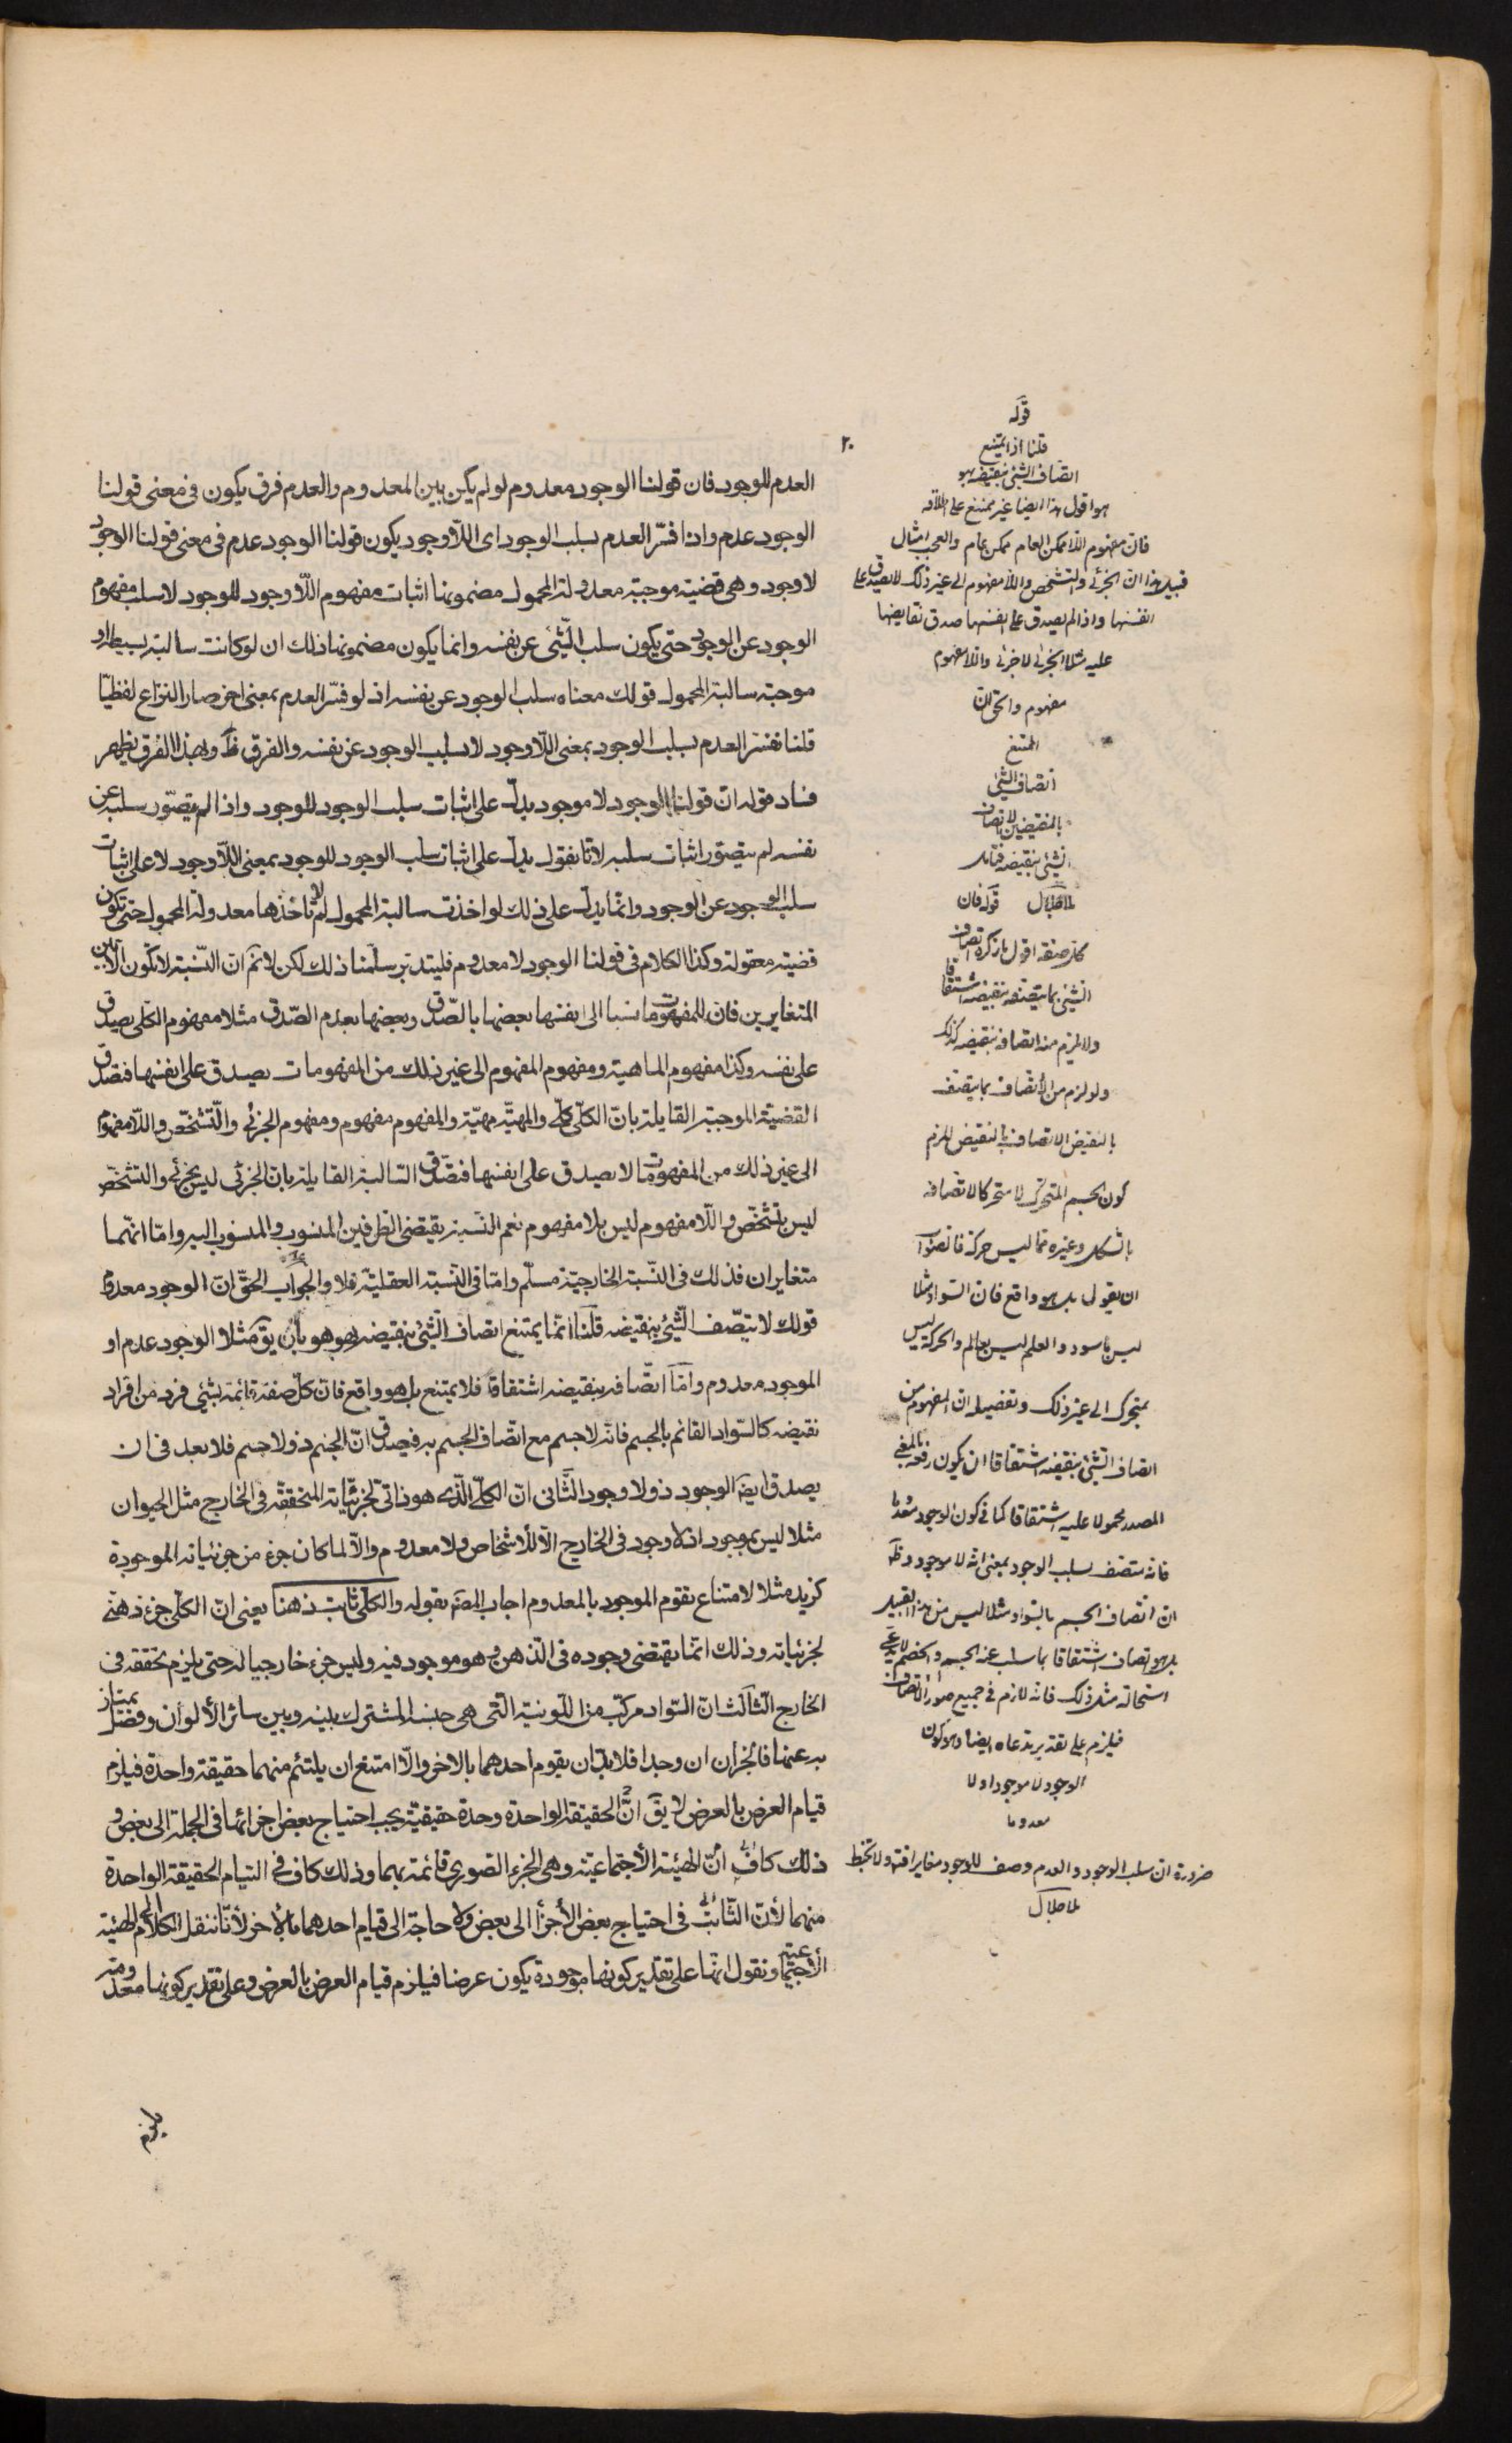 العدم للوجود فان قولنا الوجود معدوم لو لم يكن بين المعدوم والعدم فرق يكون فى معنى قولنا
الوجود عدم واذا فسّر العدم بسلب الوجود اى اللّاوجود يكون قولنا الوجود عدم فى معنى قولنا الوجود
لا وجود وهى قضية موجبة معدولة المحمول مضمونها اثبات مفهوم اللّاوجود للوجود لا سلب مفهوم
الوجود عن الوجود حتى يكون سلب الشّئ عن نفسه وانما يكون مضمونها ذلك ان لو كانت سالبة بسيطة او
موجبة سالبة المحمول قولك معناه سلب الوجود عن نفسه اذ لو فسّر العدم بمعنى اخر صار النزاع لفظيّا
قلنا نفسّر العدم بسلب الوجود بمعنى اللّاوجود لا بسلب الوجود عن نفسه والفرق ظ وبهذا الفرق يظهر
فساد قوله انّ قولنا الوجود لا موجود يدلّ على اثبات سلب الوجود للوجود واذا لم يتصوّر سلبه عن
نفسه لم يتصوّر اثبات سلبه لانا نقول يدلّ على اثبات سلب الوجود للوجود بمعنى اللّاوجود لا على اثبات
سلب الوجود عن الوجود وانّما يدلّ على ذلك لو اخذت سالبة المحمول لم لا ناخذها معدولة المحمول حتى تكون
قضية معقولة وكذا الكلام فى قولنا الوجود لا معدوم فليتدبّر سلّمنا ذلك لكن لانم انّ النّسبة لا تكون الّا بين
المتغايرين فانّ للمفهومات نسبا الى انفسها بعضها بالصّدق وبعضها بعدم الصّدق مثلا مفهوم الكلى يصدق
على نفسه وكذا مفهوم الماهية ومفهوم المفهوم الى غير ذلك من المفهومات يصدق على انفسها فتصدق
القضيّة الموجبة القايلة بانّ الكلّى كلّى والمهيّة مهيّة والمفهوم مفهوم ومفهوم الجزئى والتّشخّص واللّامفهوم
الى غير ذلك من المفهومات لا يصدق على انفسها فتصدّق السّالبة القايلة بان الجزئى ليس بجزئى والتشخّص
ليس بتشخّص واللّامفهوم ليس بلا مفهوم نعم النّسبة يقتضى الطّرفين المنسوب والمنسوب اليه وامّا انّهما
متغايران فذلك فى النّسبة الخارجيّة مسلّم وامّا فى النّسبة العقليّة فلا والجواب الحقّ انّ الوجود معدوم
قولك لا يتّصف الشّئ بنقيضه قلنا انّما يمتنع اتصاف الشّئ بنقيضه بهو هو بأن يق مثلا الوجود عدم او
الموجود معدوم وامّا اتّصافه بنقيضه اشتقاقا فلا يمتنع بل هو واقع فانّ كلّ صفة قائمة بشئ فرد من افراد
نقيضه كالسّواد القائم بالجسم فانّه لا جسم مع اتّصاف الجسم به فيصدق انّ الجسم ذو لا جسم فلا بعد فى ان
يصدق ايضا الوجود ذو لا وجود الثّانى انّ الكلّى الّذى هو ذاتى لجزئيّاته المتحققة فى الخارج مثل الحيوان
مثلا ليس بموجود اذ لا وجود فى الخارج الّا للأشخاص ولا معدوم والّا لما كان جزء من جزئياته الموجودة
كزيد مثلا لامتناع تقوم الموجود بالمعدوم اجاب المصّ بقوله والكلّى ثابت ذهنا يعنى انّ الكلّى جزء ذهنى
لجزئياته وذلك انّما يقتضى وجوده فى الذّهن وهو موجود فيه وليس جزء خارجيا له حتى يلزم تحققه فى
الخارج الثّالث انّ السّواد مركّب من اللّونية الّتى هى جنسه المشترك بينه وبين سائر الألوان وفصل يمتاز
به عنها فالجزءان ان وجدا فلابدّ ان يقوم احدهما بالاخر والّا امتنع ان يلتئم منهما حقيقة واحدة فيلزم
قيام العرض بالعرض لا يق انّ الحقيقة الواحدة وحدة حقيقيّة يجب احتياج بعض اجزائها فى الجملة الى بعض و
ذلك كاف انّ الهيئة الأجتماعيّة وهى الجزء الصّورى قائمة بهما وذلك كاف فى التيام الحقيقة الواحدة
منهما لأنّ الثّابت فى احتياج بعض الأجزاء الى بعض ولا حاجة الى قيام احدهما بالأخر لأنّا ننقل الكلام الى الهيئة
الأجتماعية ونقول انّها على تقدير كونها موجودة يكون عرضا فيلزم قيام العرض بالعرض وعلى تقدير كونها معدومة
يلزم
٢٠
قوله
قلنا انما يمتنع
اتصاف الشئ بنقيضه بهو
هو اقول هذا ايضا غير ممتنع على اطلاقه
فان مفهوم اللاممكن العام ممكن عام والعجب امثال
قبيل هذا ان الجزئى والتشخص واللامفهوم الى غير ذلك لا يصدق على
انفسها واذا لم يصدق على انفسها صدق نقايضها
عليه مثلا الجزئى لا جزئى واللامفهوم
مفهوم والحق ان
الممتنع
اتصاف الشئ
بالنقيضين لا اتصاف
الشئ بنقيضه فتامل
قوله فان
كل صفة اقول ما ذكره اتصاف
الشئ بما يتصف بنقيضه اشتقاقا
ولا يلزم منه اتصافه بنقيضه كذلك
ولو لزم من الاتصاف بما يتصف
بالنقيض الاتصاف بالنقيض للزم
كون الجسم المتحرك لا متحركا لاتصافه
بالشكل وغيره مما ليس حركة فالصواب
ان يقول بل هو واقع فان السواد مثلا
ليس باسود والعلم ليس بعالم والحركة ليس
بمتحرك الى غير ذلك وتفصيله ان المفهوم من
اتصاف الشئ بنقيضه اشتقاقا ان يكون رفعه بالمعنى
المصدر محمولا عليه اشتقاقا كما فى كون الوجود معدوما
فانه متصف بسلب الوجود بمعنى انه لا موجود وظ
ان اتصاف الجسم بالسواد مثلا ليس من هذا القبيل
بل هو اتصاف اشتقاقا بما سلب عنه الجسم والخصم لا يدعى
استحالة مثل ذلك فانه لازم فى جميع صور الاتصاف
فيلزم على تقدير مدعاه ايضا وهو كون
الوجود لا موجودا ولا
معدوما
ضرورة ان سلب الوجود والعدم وصف للوجود مغاير فافهم ولا تخبط